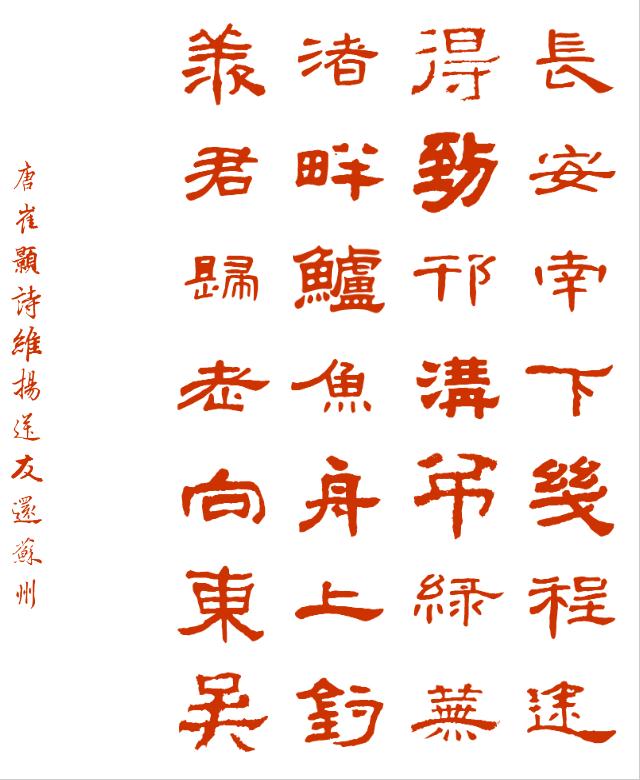 長安南下幾程途
得到邗溝吊綠蕪
渚畔鱸魚舟上釣
羨君歸老向東吳
唐崔顥詩維揚送友還蘇州